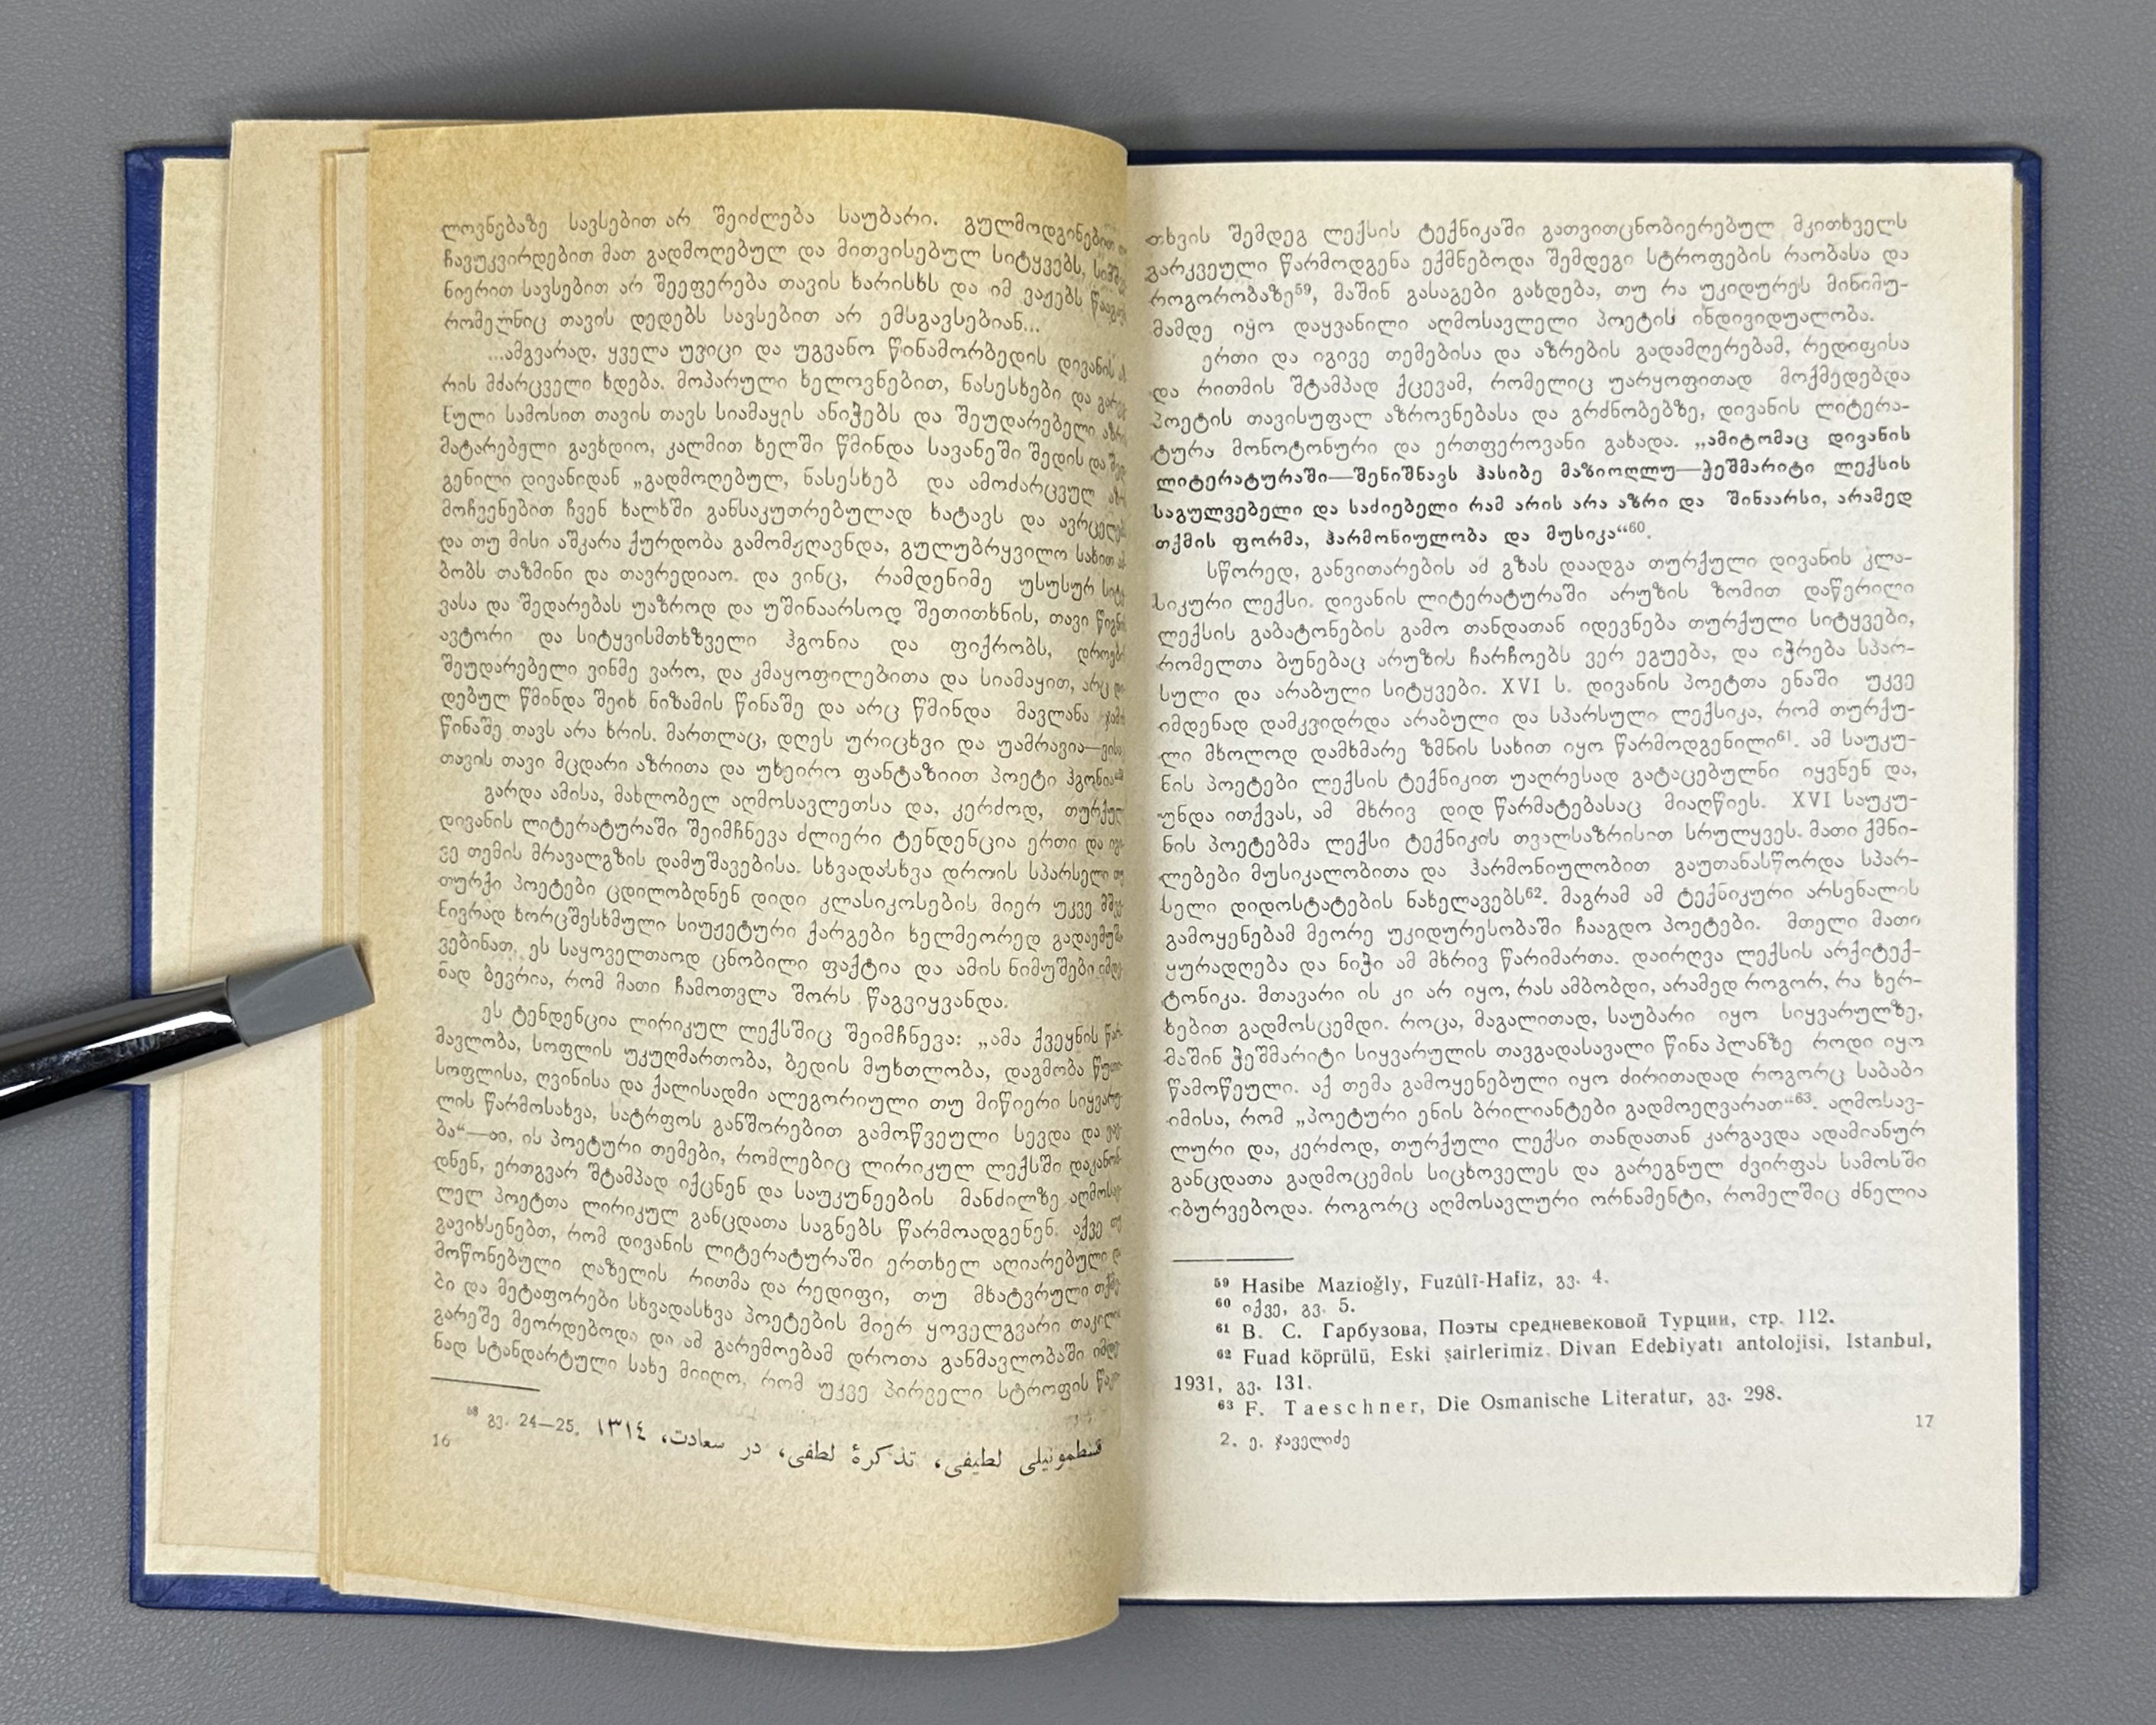 ლოვნებაზე სავსებით არ შეიძლება საუბარი. გულმოდგინებით
ჩავუკვირდებით მათ გადმოღებულ და მითვისებულ სიტყვებს,
ნიერით სავსებით არ შეეფერება თავის ხარისხს და იმ ვაჟებს
რომელნიც თავის დედებს სავსებით არ ემსგავსებიან...
...ამგვარად, ყველა უვიცი და უგვანო წინამორბედის დივანის
რის მძარცველი ხდება. მოპარული ხელოვნებით, ნასესხები და
ნული სამოსით თავის თავს სიამაყეს ანიჭებს და შეუდარებელი
მატარებელი გავხდიო, კალმით ხელში წმინდა სავანეში შედის და
გენილი დივანიდან „გადმოღებულ, ნასესხებ და ამოძარცვულ
მოჩვენებით ჩვენ ხალხში განსაკუთრებულად ხატავს და
და თუ მისი აშკარა ქურდობა გამომჟღავნდა, გულუბრყვილო სახით
ბობს თაზმინი და თავრედიაო. და ვინც, რამდენიმე უსუსურ
ვასა და შედარებას უაზროდ და უშინაარსოდ შეთითხნის, თავი
ავტორი და სიტყვისმთხზველი ჰგონია და ფიქრობს,
შეუდარებელი ვინმე ვარო, და კმაყოფილებითა და სიამაყით, არც
დებულ წმინდა შეიხ ნიზამის წინაშე და არც წმინდა მავლანა
წინაშე თავს არა ხრის. მართლაც, დღეს ურიცხვი და უამრავია—
თავის თავი მცდარი აზრითა და უხეირო ფანტაზიით პოეტი ჰგონია“
გარდა ამისა, მახლობელ აღმოსავლეთსა და, კერძოდ, თურქულ
დივანის ლიტერატურაში შეიმჩნევა ძლიერი ტენდენცია ერთი და
ვე თემის მრავალგზის დამუშავებისა. სხვადასხვა დროის სპარსელი
თურქი პოეტები ცდილობდნენ დიდი კლასიკოსების მიერ უკვე
ნივრად ხორცშესხმული სიუჟეტური ქარგები ხელმეორედ
ვებინათ, ეს საყოველთაოდ ცნობილი ფაქტია და ამის ნიმუშები
ნად ბევრია, რომ მათი ჩამოთვლა შორს წაგვიყვანდა.
ეს ტენდენცია ლირიკულ ლექსშიც შეიმჩნევა: „ამა ქვეყნის
მავლობა, სოფლის უკუღმართობა, ბედის მუხთლობა, დაგმობა
სოფლისა, ღვინისა და ქალისადმი ალეგორიული თუ მიწიერი
ლის წარმოსახვა, სატრფოს განშორებით გამოწვეული სევდა და
ბა“—აი, ის პოეტური თემები, რომლებიც ლირიკულ ლექსში
დნენ, ერთგვარ შტამპად იქცნენ და საუკუნეების მანძილზე
ლელ პოეტთა ლირიკულ განცდათა საგნებს წარმოადგენენ. აქვე
გავიხსენებთ, რომ დივანის ლიტერატურაში ერთხელ აღიარებული
მოწონებული ღაზელის რითმა და რედიფი, თუ მხატვრული
ბი და მეტაფორები სხვადასხვა პოეტების მიერ ყოველგვარი
გარეშე მეორდებოდა და ამ გარემოებამ დროთა განმავლობაში
ნად სტანდარტული სახე მიიღო, რომ უკვე პირველი სტროფის
⁵⁸ გვ. 24—25. قسطمونیلی لطیفی، تذکرهٔ لطفی، در سعادت، ١٣١٤
16
თხვის შემდეგ ლექსის ტექნიკაში გათვითცნობიერებულ მკითხველს
გარკვეული წარმოდგენა ექმნებოდა შემდეგი სტროფების რაობასა და
როგორობაზე⁵⁹, მაშინ გასაგები გახდება, თუ რა უკიდურეს მინიმუ-
მამდე იყო დაყვანილი აღმოსავლელი პოეტის ინდივიდუალობა.
ერთი და იგივე თემებისა და აზრების გადამღერებამ, რედიფისა
და რითმის შტამპად ქცევამ, რომელიც უარყოფითად მოქმედებდა
პოეტის თავისუფალ აზროვნებასა და გრძნობებზე, დივანის ლიტერა-
ტურა მონოტონური და ერთფეროვანი გახადა. „ამიტომაც დივანის
ლიტერატურაში—შენიშნავს ჰასიბე მაზიოღლუ—ჭეშმარიტი ლექსის
საგულვებელი და საძიებელი რამ არის არა აზრი და შინაარსი, არამედ
თქმის ფორმა, ჰარმონიულობა და მუსიკა“⁶⁰.
სწორედ, განვითარების ამ გზას დაადგა თურქული დივანის კლა-
სიკური ლექსი. დივანის ლიტერატურაში არუზის ზომით დაწერილი
ლექსის გაბატონების გამო თანდათან იდევნება თურქული სიტყვები,
რომელთა ბუნებაც არუზის ჩარჩოებს ვერ ეგუება, და იჭრება სპარ-
სული და არაბული სიტყვები. XVI ს. დივანის პოეტთა ენაში უკვე
იმდენად დამკვიდრდა არაბული და სპარსული ლექსიკა, რომ თურქუ-
ლი მხოლოდ დამხმარე ზმნის სახით იყო წარმოდგენილი⁶¹. ამ საუკუ-
ნის პოეტები ლექსის ტექნიკით უაღრესად გატაცებულნი იყვნენ და,
უნდა ითქვას, ამ მხრივ დიდ წარმატებასაც მიაღწიეს. XVI საუკუ-
ნის პოეტებმა ლექსი ტექნიკის თვალსაზრისით სრულყვეს. მათი ქმნი-
ლებები მუსიკალობითა და ჰარმონიულობით გაუთანასწორდა სპარ-
სელი დიდოსტატების ნახელავებს⁶². მაგრამ ამ ტექნიკური არსენალის
გამოყენებამ მეორე უკიდურესობაში ჩააგდო პოეტები. მთელი მათი
ყურადღება და ნიჭი ამ მხრივ წარიმართა. დაირღვა ლექსის არქიტექ-
ტონიკა. მთავარი ის კი არ იყო, რას ამბობდი, არამედ როგორ, რა ხერ-
ხებით გადმოსცემდი. როცა, მაგალითად, საუბარი იყო სიყვარულზე,
მაშინ ჭეშმარიტი სიყვარულის თავგადასავალი წინა პლანზე როდი იყო
წამოწეული. აქ თემა გამოყენებული იყო ძირითადად როგორც საბაბი
იმისა, რომ „პოეტური ენის ბრილიანტები გადმოეღვარათ“⁶³. აღმოსავ-
ლური და, კერძოდ, თურქული ლექსი თანდათან კარგავდა ადამიანურ
განცდათა გადმოცემის სიცხოველეს და გარეგნულ ძვირფას სამოსში
იბურვებოდა. როგორც აღმოსავლური ორნამენტი, რომელშიც ძნელია
⁵⁹ Hasibe Mazioğly, Fuzûlî-Hafiz, გვ. 4.
⁶⁰ იქვე, გვ. 5.
⁶¹ В. С. Гарбузова, Поэты средневековой Турции, стр. 112.
⁶² Fuad köprülü, Eski şairlerimiz. Divan Edebiyatı antolojisi, Istanbul,
1931, გვ. 131.
⁶³ F. Taeschner, Die Osmanische Literatur, გვ. 298.
2. ე. ჯაველიძე
17